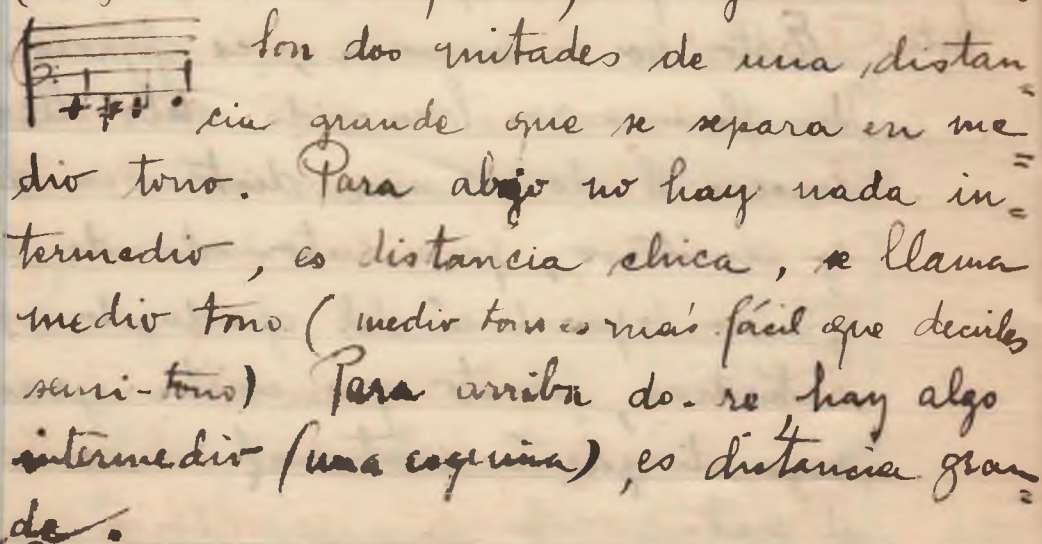 Son dos mitades de una distan=
cia grande que se separa en me=
dio tono. Para abajo no hay nada in=
termedio, es distancia chica, se llama
medio tono (medio tono es más fácil que decirles
semi-tono) Para arriba do-re hay algo
intermedio (una esquina), es distancia gran=
de.